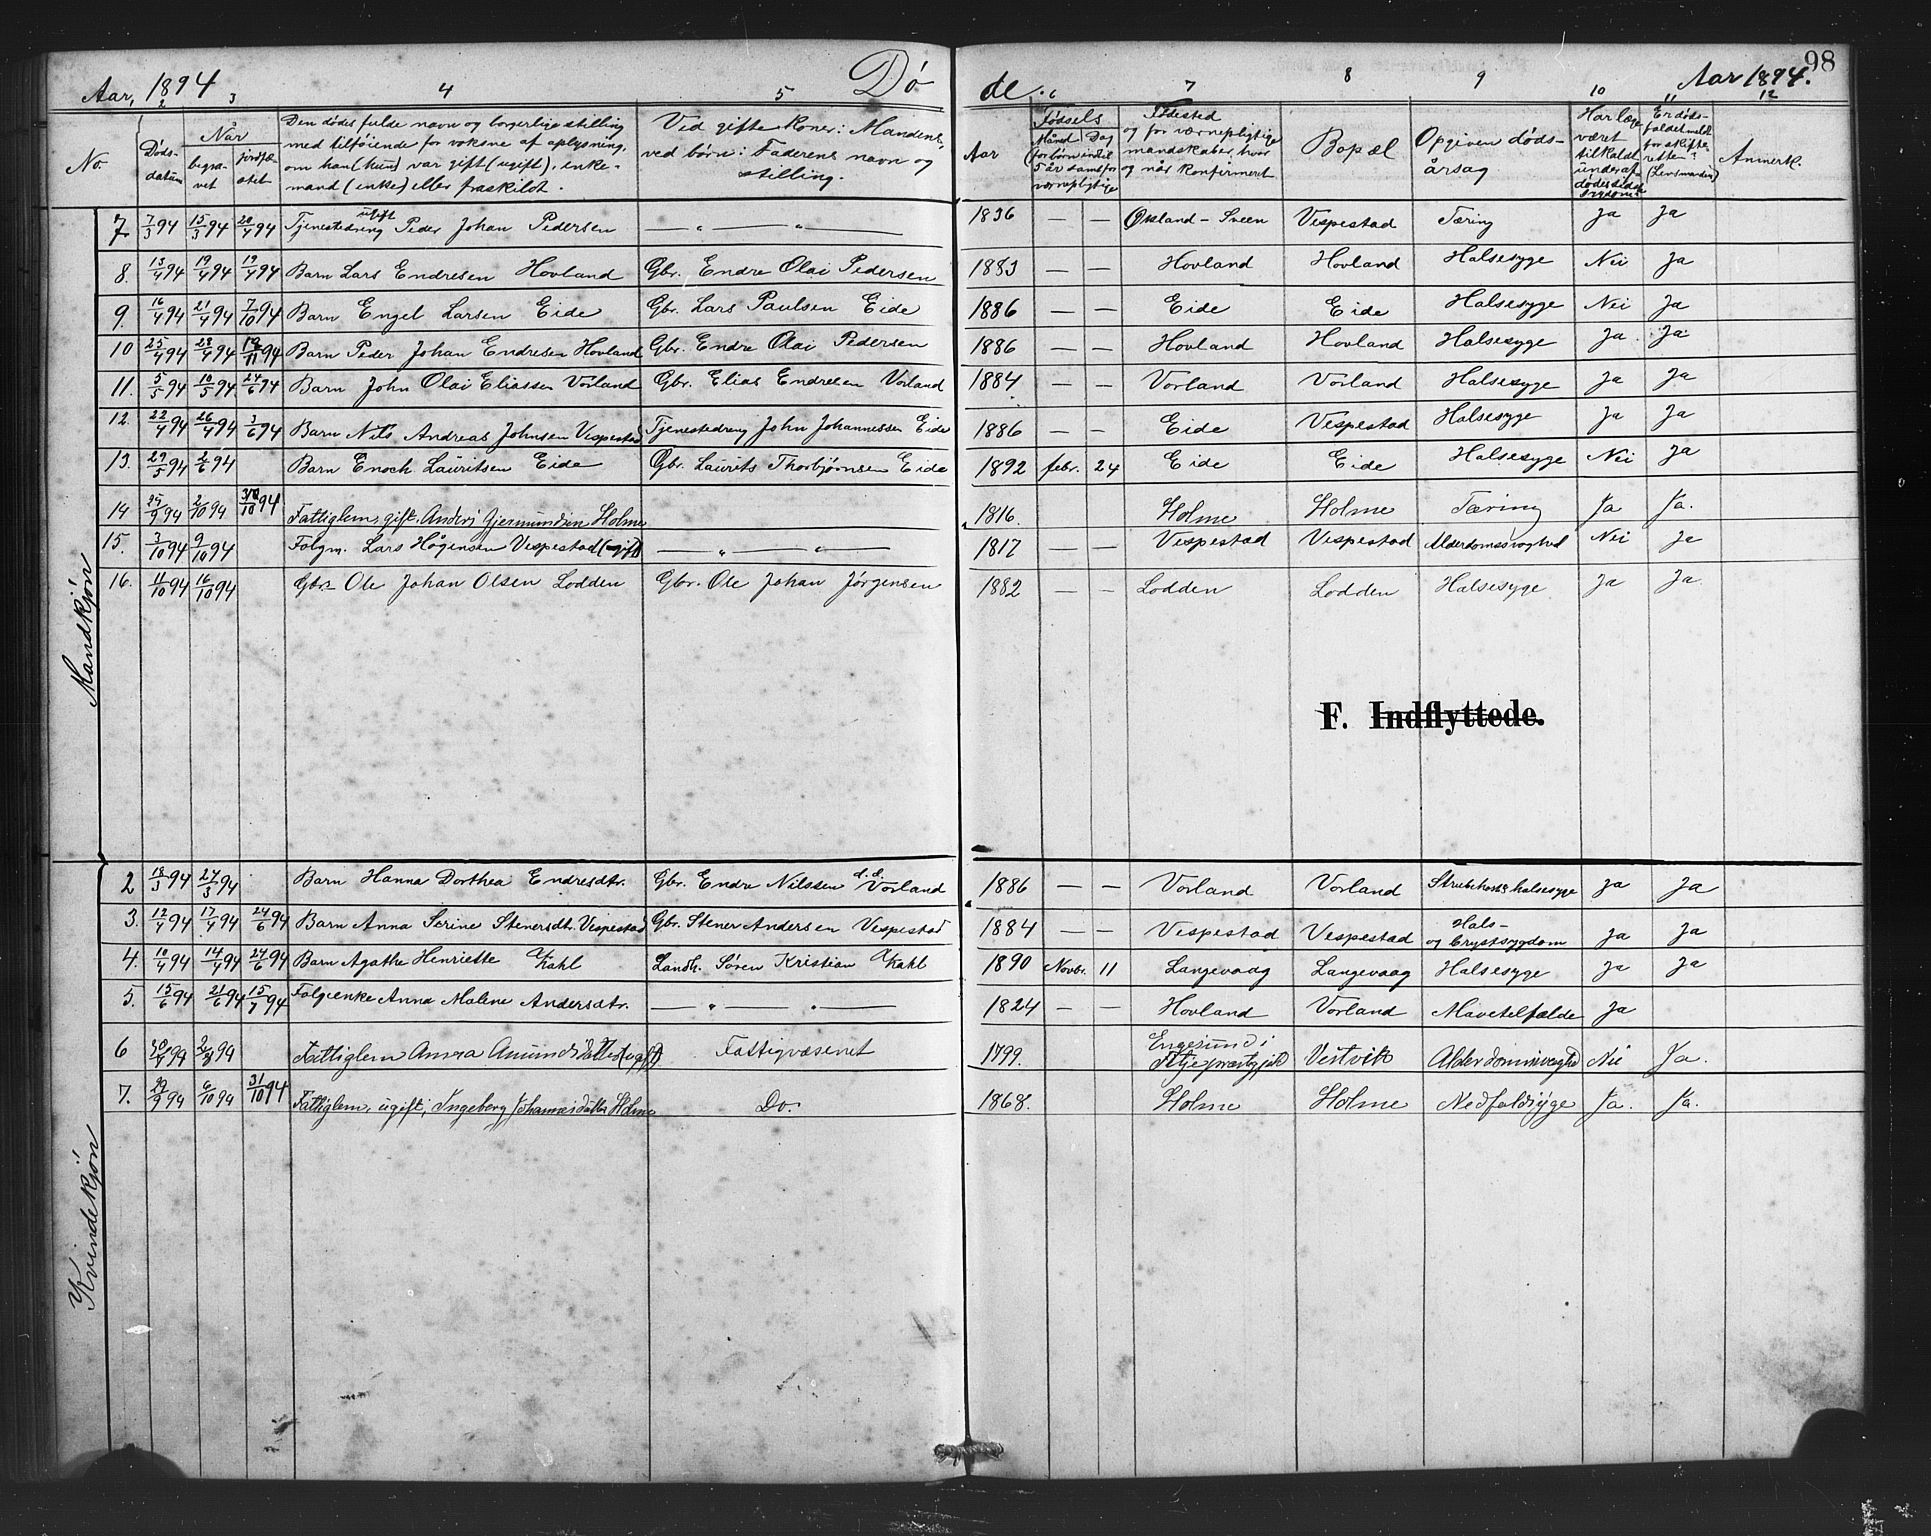 98
Aar, 1894 Dø de. Aar 1894.
2 3 4 5 6 7 8 9 10 11 12
No. Døds-datum Når begra-vet jordfæ-stet Den dødes fulde navn og borgerlige stilling med tilføiende for voksne af oplysning, om han (hun) var gift (ugift), enke-mand (enke) eller fraskildt. Ved gifte koner: Mandens, ved børn: Faderens navn og stilling. Fødsels Aar Månd Dag (for børn indtil 5 år samt for værnepligtige Fødested og for værnepligtige mandskaber, hvor og når konfirmeret Bopæl Opgiven døds-årsag Har læge været tilkaldt under af-dødes sidste sygdom? Er døds-faldet meldt for skifte-retten? (Lensmanden) Anmerk.
Mandkjøn
7 7/3 94 15/3 94 20/4 94 Tjenestedreng ugift Peder Johan Pedersen — „ — „ — 1836 — — Økland - Sveen Vespestad Tæring Ja Ja
8. 13/4 94 19/4 94 19/4 94 Barn Lars Endresen Hovland Gbr. Endre Olai Pedersen 1883 — — Hovland Hovland Halsesyge Nei Ja
9. 16/4 94 21/4 94 7/10 94 Barn Engel Larsen Eide Gbr. Lars Paulsen Eide 1886 — — Eide Eide Halsesyge Nei Ja
10 25/4 94 28/4 94 19/11 94 Barn Peder Johan Endresen Hovland Gbr. Endre Olai Pedersen 1886 — — Hovland Hovland Halsesyge Ja Ja
11. 5/5 94 10/5 94 24/6 94 Barn John Olai Eliassen Vorland Gbr. Elias Endresen Vorland 1884 — — Vorland Vorland Halsesyge Ja Ja
12. 22/4 94 26/4 94 3/6 94 Barn Nils Andreas Johnsen Vespestad Tjenestedreng John Johannessen Eide 1886 — — Eide Vespestad Halsesyge Ja Ja
13. 29/5 94 2/6 94 Barn Enoch Lauritsen Eide Gbr. Laurits Thorbjørnsen Eide 1892 febr. 24 Eide Eide Halsesyge Nei Ja
14 25/9 94 2/10 94 31/10 94 Fattiglem, gift. Anders Gjermundsen Holme 1816. Holme Holme Tæring Ja Ja.
15. 3/10 94 9/10 94 Folgm. Lars Hågensen Vespestad (ugift) — „ — „ — 1817 — — Vespestad Vespestad Alderdomssvaghed Nei Ja
16. 11/10 94 16/10 94 Gbr. Ole Johan Olsen Lodden Gbr. Ole Johan Jørgensen 1882 — — Lodden Lodden Halsesyge Ja Ja
F. Indflyttede.
Kvindekjøn
2 18/3 94 24/3 94 Barn Hanna Dorthea Endresdtr. Gbr. Endre Nilssen d.e. Vorland 1886 — — Vorland Vorland Strubehoste halsesyge Ja Ja
3. 12/4 94 17/4 94 24/6 94 Barn Anna Serine Stenersdt. Vespestad Gbr. Stener Andersen Vespestad 1884 — — Vespestad Vespestad Hals- og Brystsygdom Ja Ja
4. 10/4 94 14/4 94 24/6 94 Barn Agathe Henriette Kahl Landh. Søren Kristian Kahl 1890 Novbr. 11 Langevaag Langevaag Halsesyge Ja Ja
5. 15/6 94 21/6 94 15/7 94 Folgenke Anna Malene Andersdtr. — „ — „ — 1824 — — Hovland Vorland Mavetilfælde Ja
6 94 94 Fattiglem Anna Fattigvæsenet 1799. Engesund i Fitje præstegjeld Vestvik Nei Ja.
7. 29/9 94 6/10 94 31/10 94 Fattiglem, ugift, Ingeborg Johannesdatter Holme Do. 1868. Holme Holme Nedfaldsyge Ja. Ja.